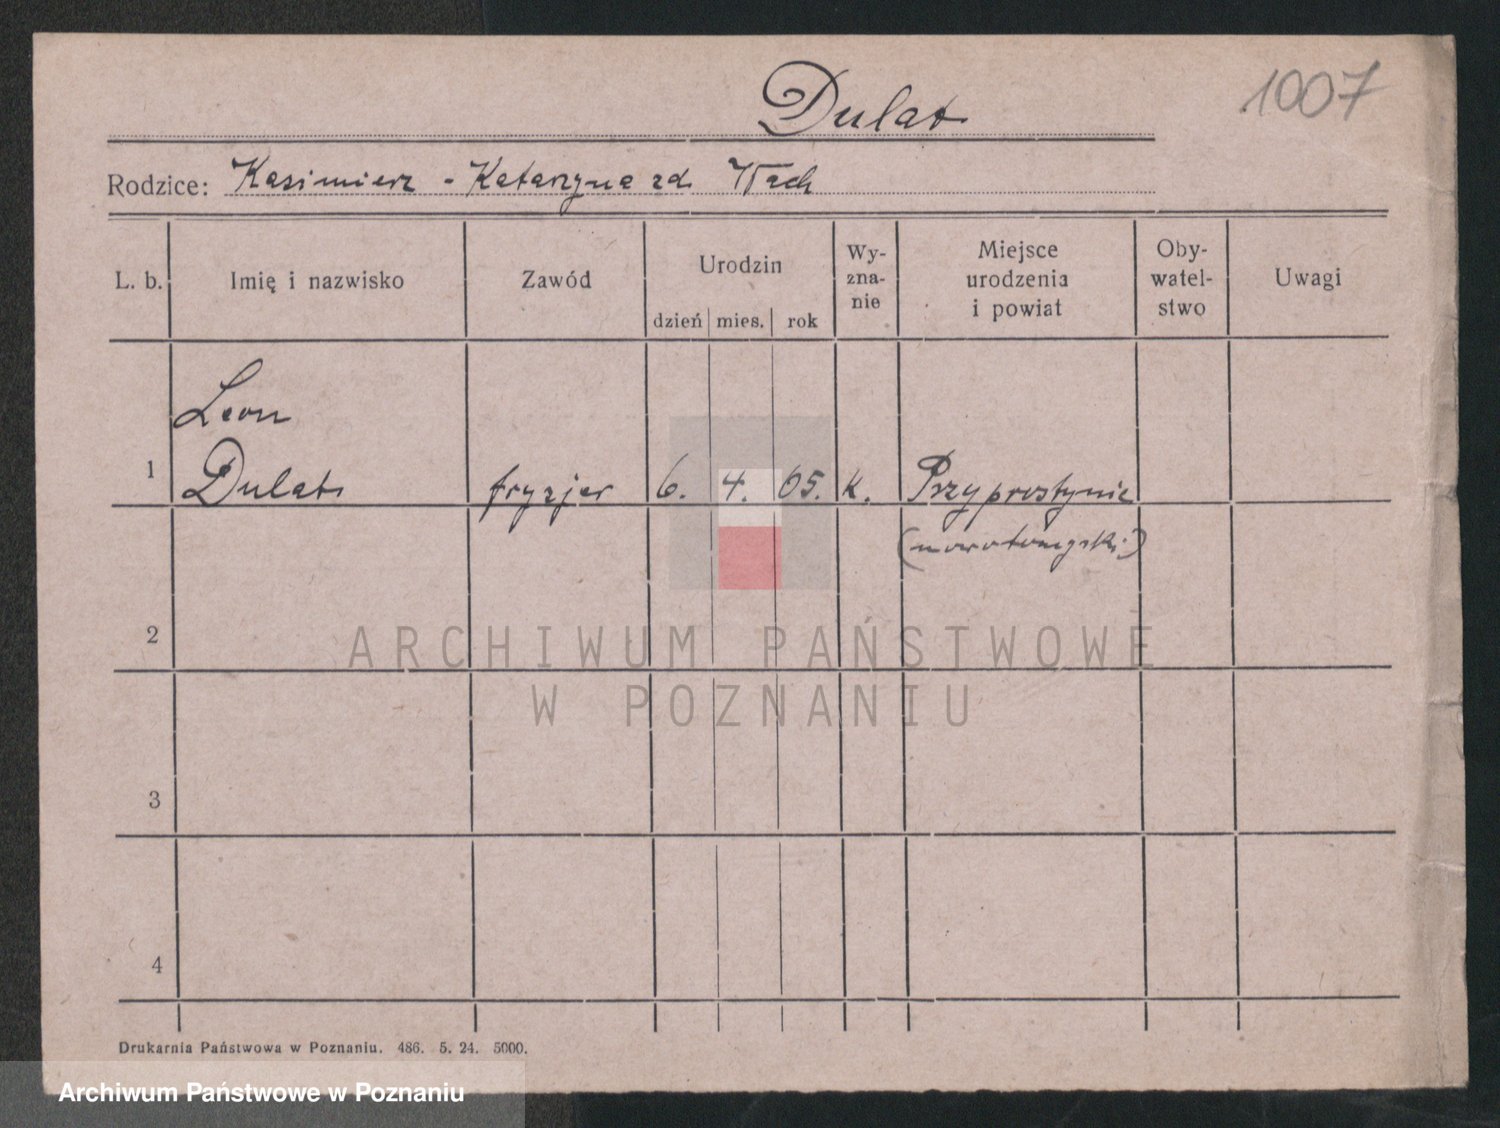 1007
Dulat
Rodzice: Kasimierz - Katarzyna zd. Wach
L. b. Imię i nazwisko Zawód Urodzin dzień mies. rok Wy-zna-nie Miejsce urodzenia i powiat Oby-watel-stwo Uwagi
Leon
1 Dulat fryzjer 6. 4. 05. k. Przyprostynie
(nowotomyski)
2
ARCHIWUM PAŃSTWOWE
W POZNANIU
3
4
Drukarnia Państwowa w Poznaniu. 486. 5. 24. 5000.
Archiwum Państwowe w Poznaniu